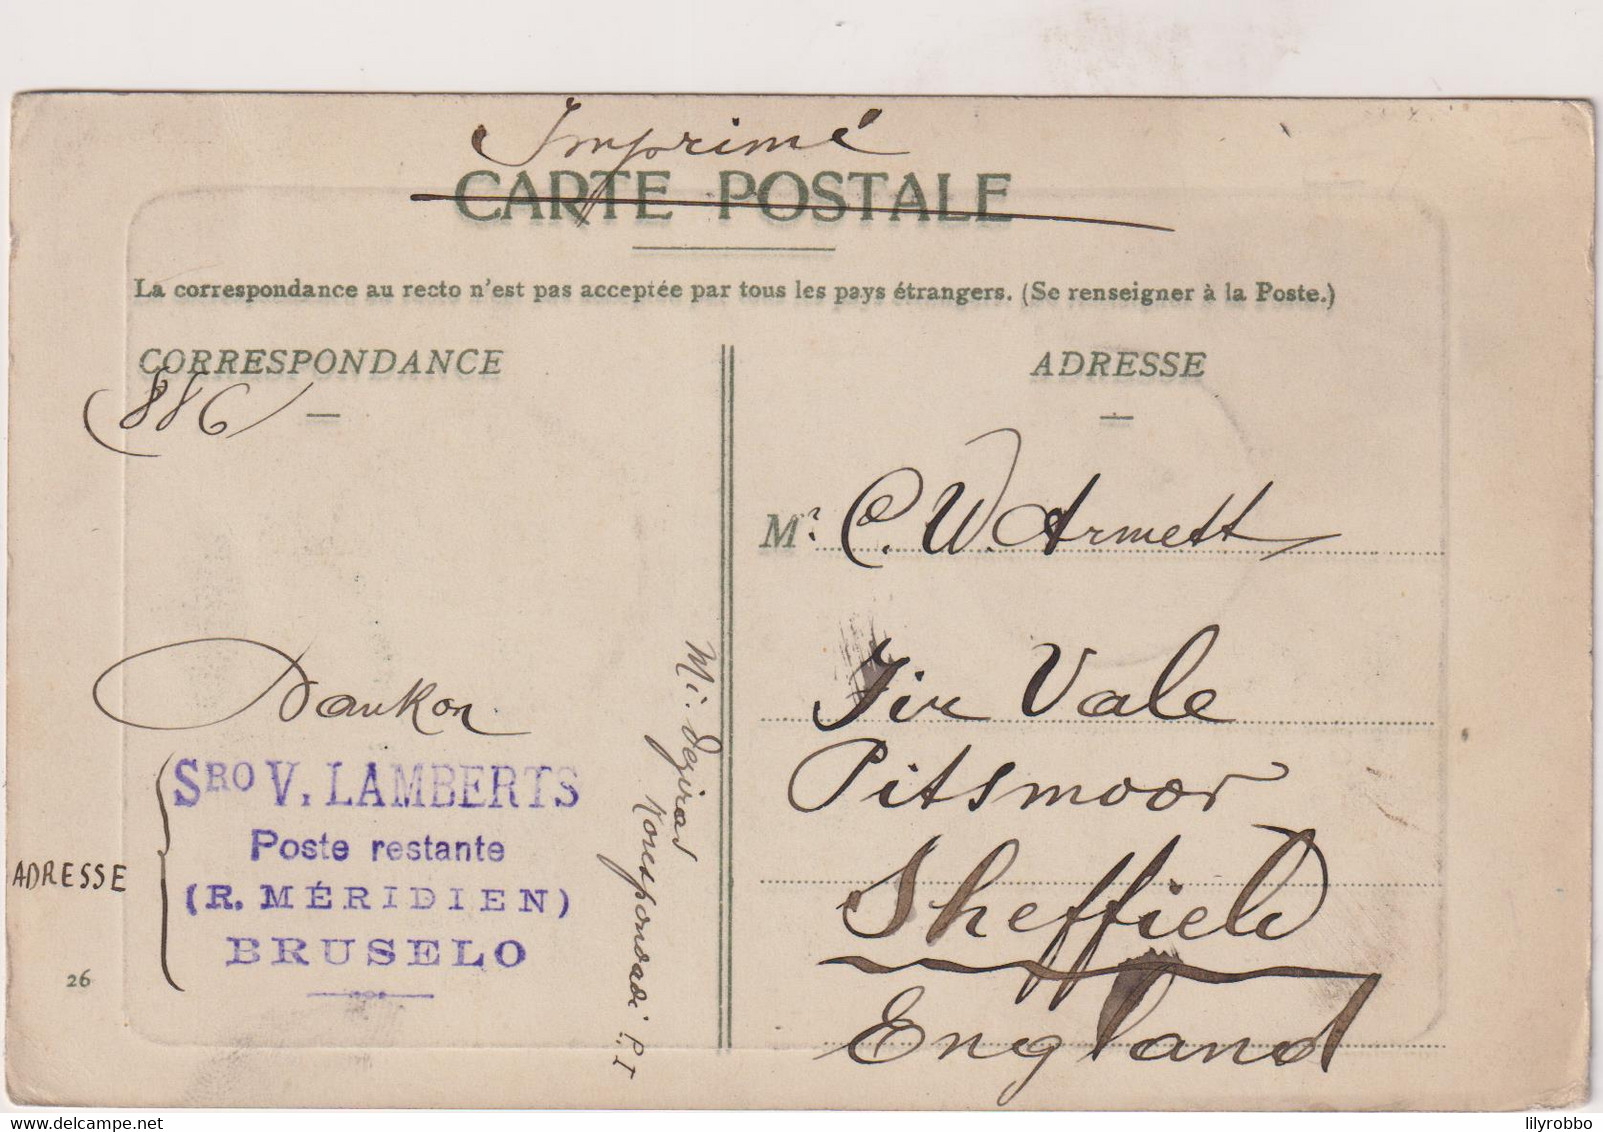 Imprimé
CARTE POSTALE
La correspondance au recto n'est pas acceptée par tous les pays étrangers. (Se renseigner à la Poste.)
CORRESPONDANCE
(886)
Dankon
SRO V. LAMBERTS
Poste restante
(R. MÉRIDIEN)
BRUSELO
ADRESSE
26
Mi deziras
Korespondadi P.I
ADRESSE
Mr. C. W. Armett
Fir Vale
Pitsmoor
Sheffield
England
lilyrobbo